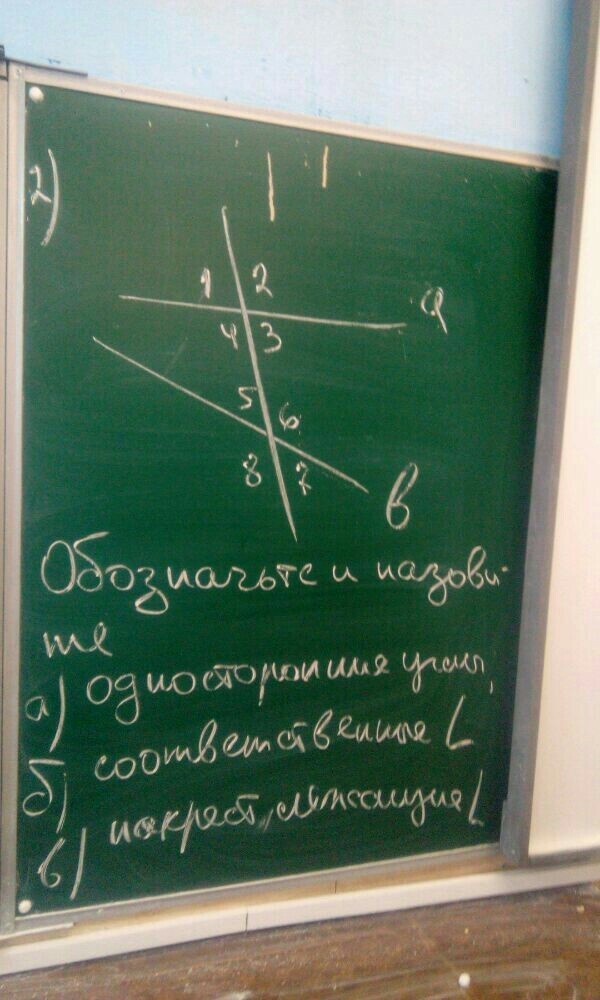 2)
1 2 a
4 3
5 6
8 7 в
Обозначьте и назови-
те
а) односторонние углы,
б) соответственные ∠
в) накрест лежащие ∠